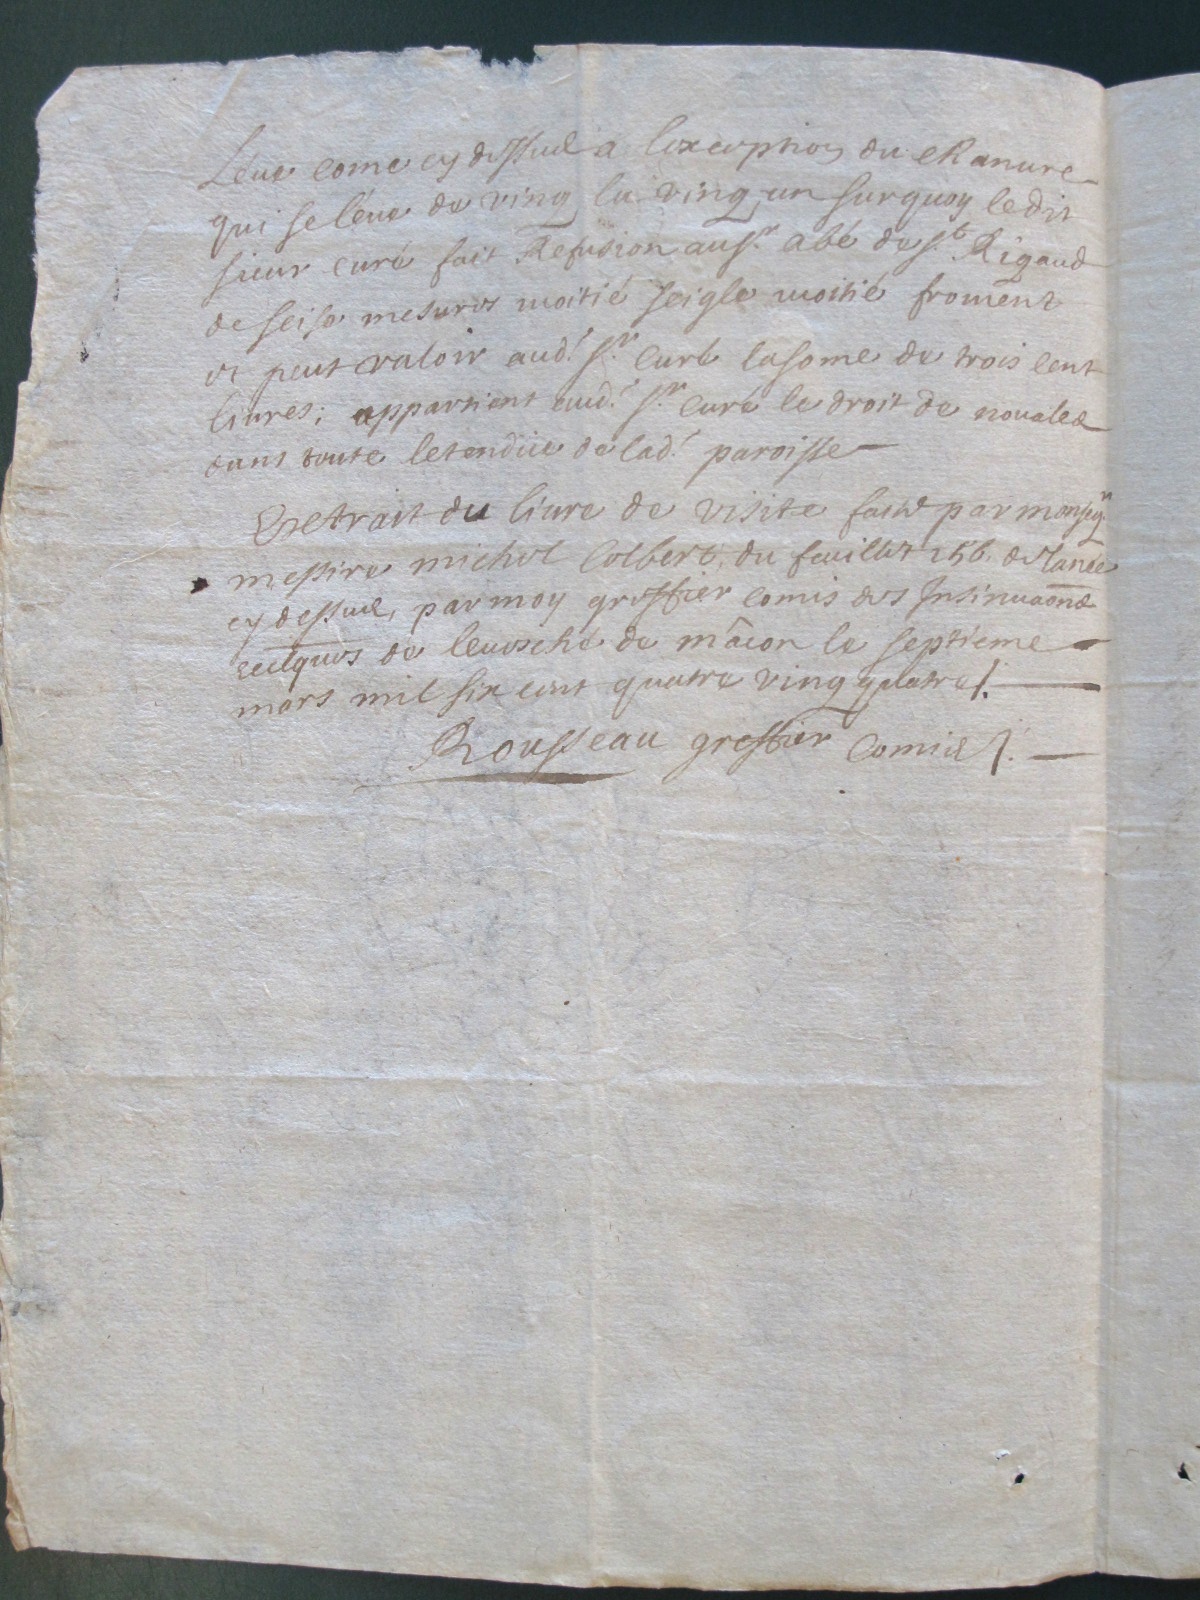 Leue come cy dessus a lexception du chanure
qui se léue de ving la ving un surquoy ledit
sieur curé fait Refusion au sr. abé de st Rigaud
de seise mesures moitié seigle moitié froment
et peut valoir aud. sr. curé la some de trois cent
liures; appartient aud. sr. curé le droit de nouales
dans toute letendue de lad. paroisse
Extrait du liure de visite faite par monsegr
messire michel Colbert, du feuillet 156. de lanée
cy dessus, par moy greffier comis des Insinuaons
eccl'ques de leuesché de mâcon le septieme
mars mil six cent quatre ving quatre ./.
Rousseau greffier comis ./.